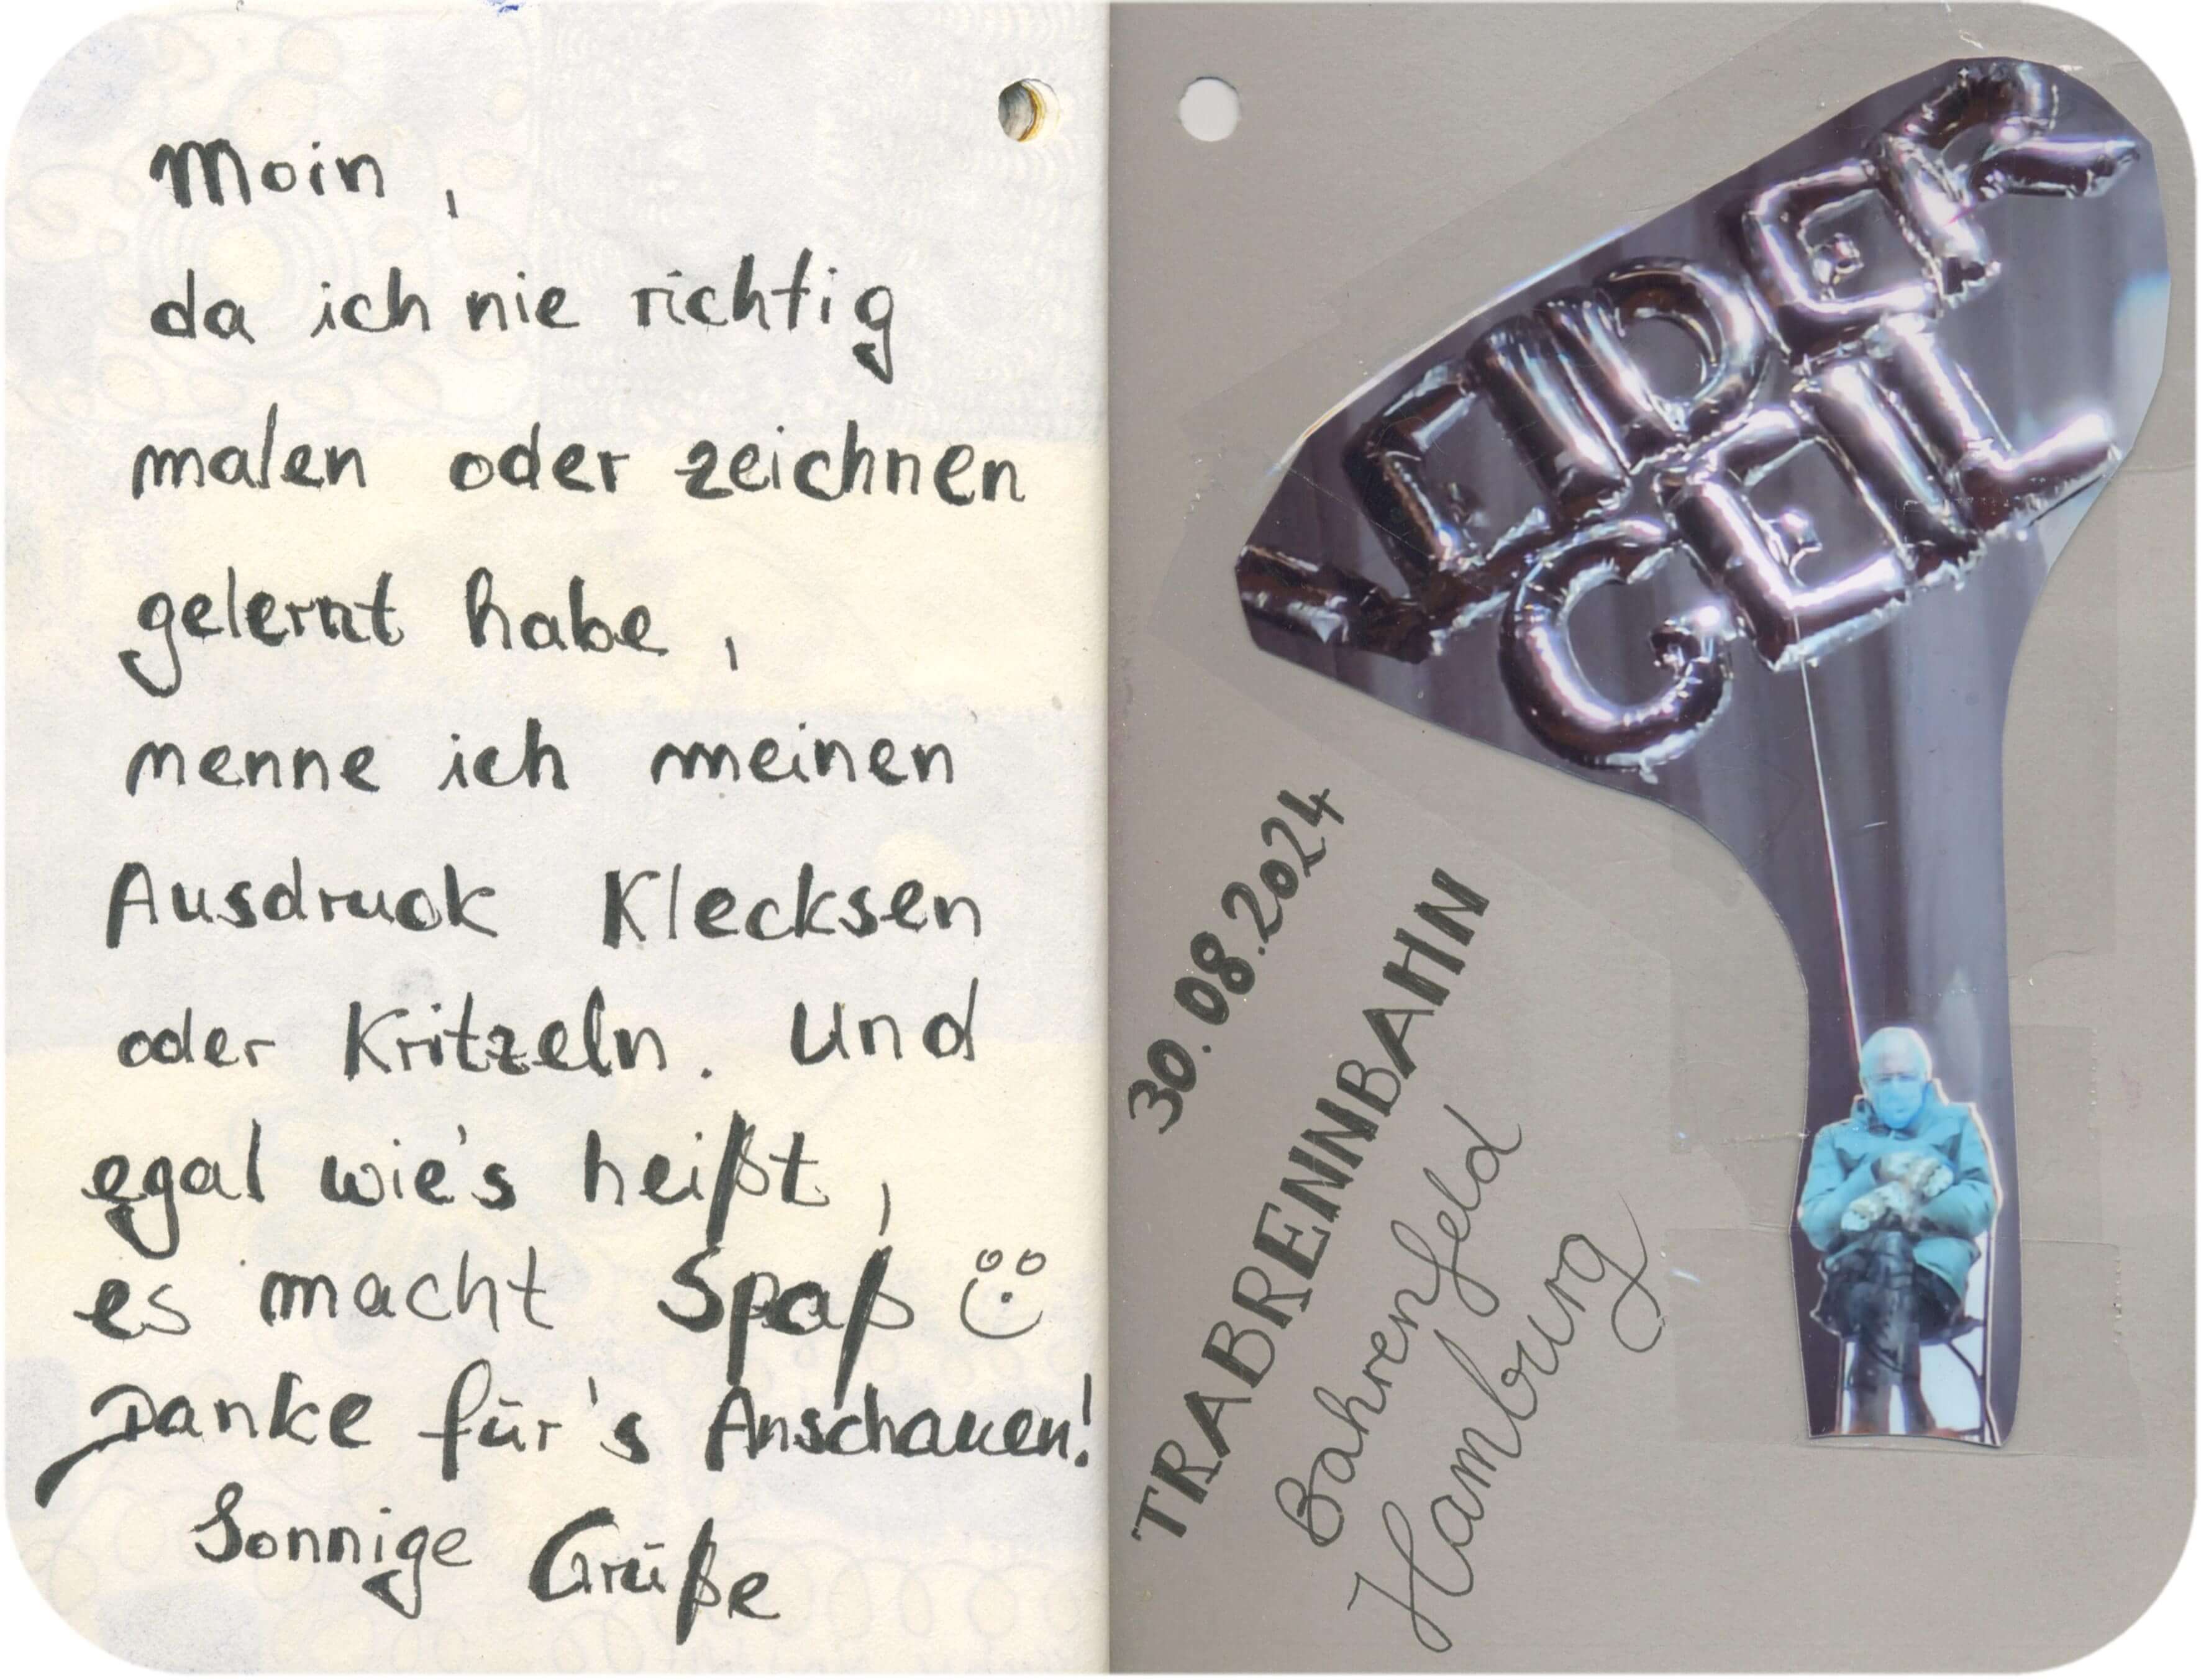 Moin,
da ich nie richtig
malen oder zeichnen
gelernt habe,
nenne ich meinen
Ausdruck Klecksen
oder Kritzeln. Und
egal wie's heißt,
es macht Spaß
Danke für's Anschauen!
Sonnige Grüße
LEIDER
GEIL
30.08.2024
TRABRENNBAHN
Bahrenfeld
Hamburg